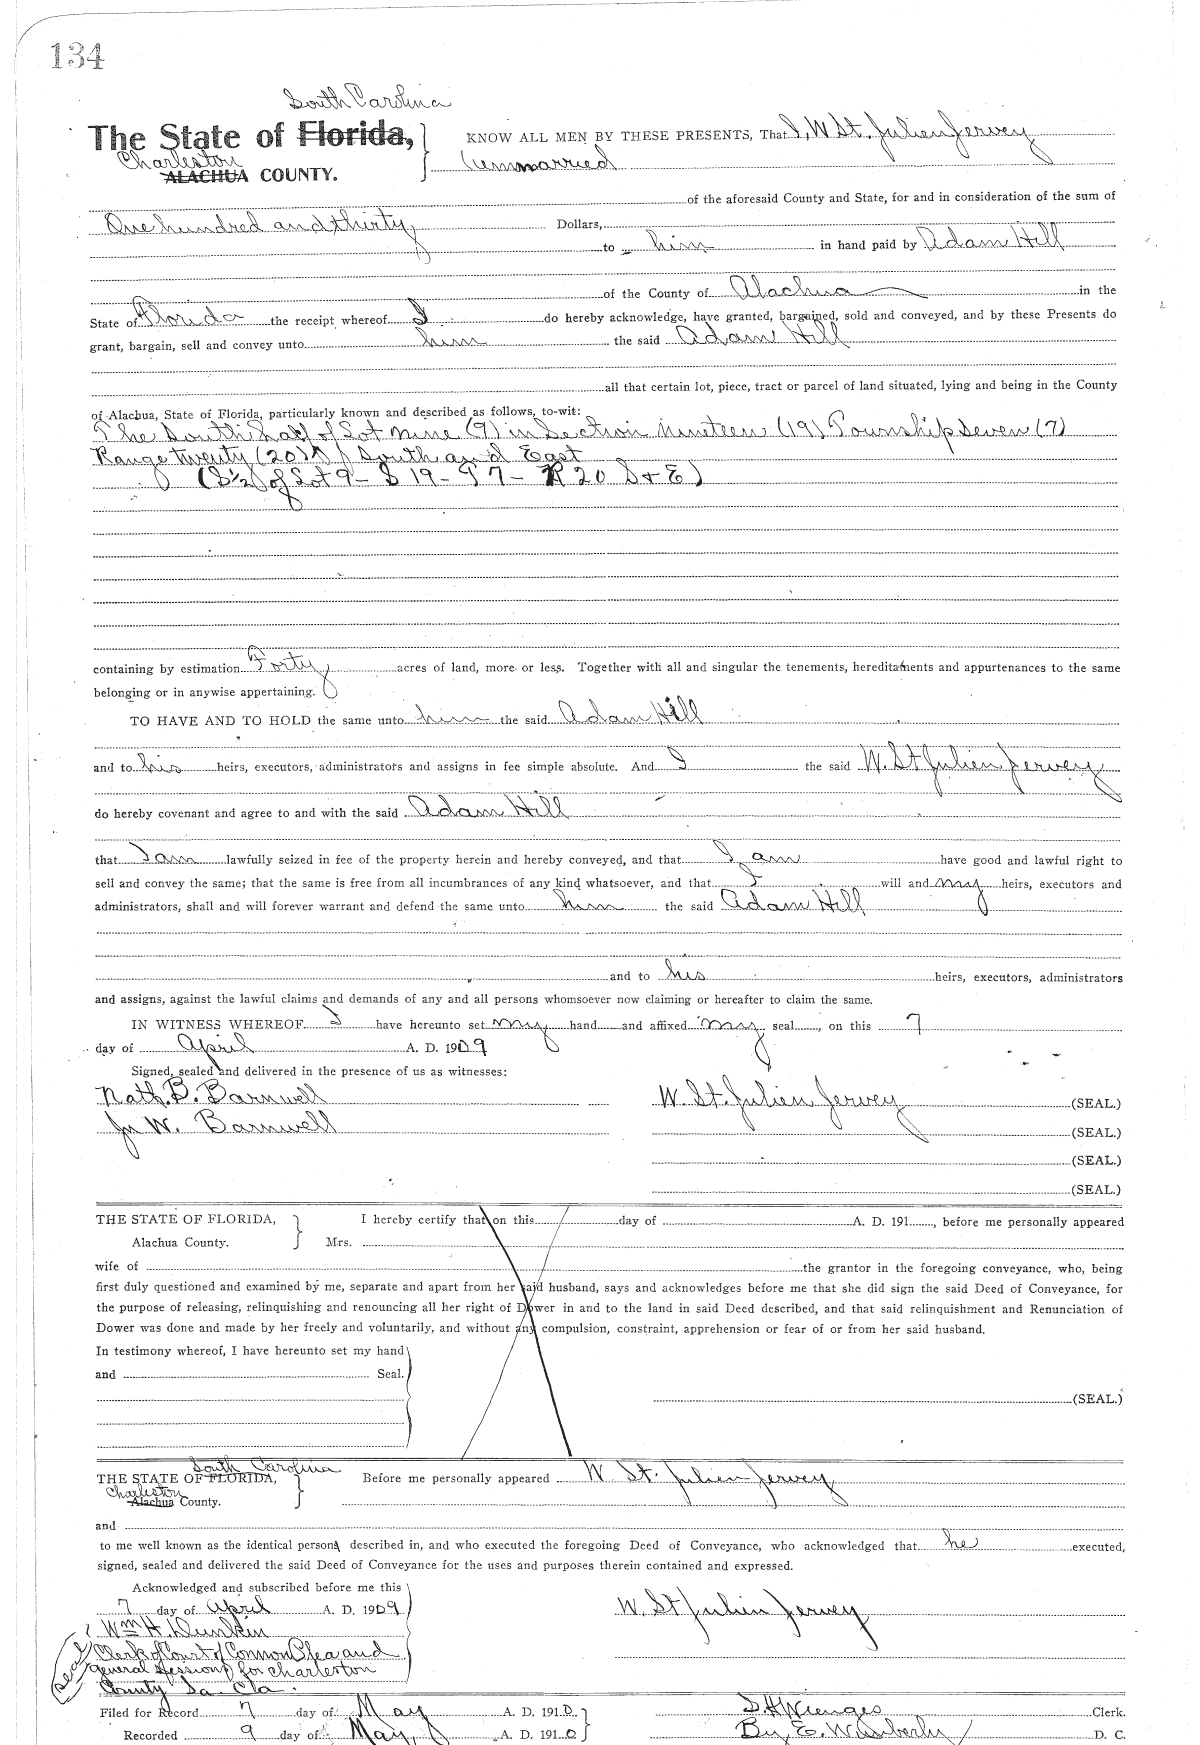 134
South Carolina
The State of Florida, KNOW ALL MEN BY THESE PRESENTS, That I, W St. Julien Jervey
Charleston
ALACHUA COUNTY. Unmarried
of the aforesaid County and State, for and in consideration of the sum of
One hundred and thirty Dollars,
to him in hand paid by Adam Hill
of the County of Alachua in the
State of Florida the receipt whereof I do hereby acknowledge, have granted, bargained, sold and conveyed, and by these Presents do
grant, bargain, sell and convey unto him the said Adam Hill
all that certain lot, piece, tract or parcel of land situated, lying and being in the County
of Alachua, State of Florida, particularly known and described as follows, to-wit:
The South half of Lot nine (9) in Section nineteen (19) Township Seven (7)
Range twenty (20) South and East
(S½ of Lot 9 - S 19 - T 7 - R 20 S & E)
containing by estimation Forty acres of land, more or less. Together with all and singular the tenements, hereditaments and appurtenances to the same
belonging or in anywise appertaining.
TO HAVE AND TO HOLD the same unto him the said Adam Hill
and to his heirs, executors, administrators and assigns in fee simple absolute. And I the said W. St Julien Jervey
do hereby covenant and agree to and with the said Adam Hill
that I am lawfully seized in fee of the property herein and hereby conveyed, and that I am have good and lawful right to
sell and convey the same; that the same is free from all incumbrances of any kind whatsoever, and that I will and my heirs, executors and
administrators, shall and will forever warrant and defend the same unto him the said Adam Hill
and to his heirs, executors, administrators
and assigns, against the lawful claims and demands of any and all persons whomsoever now claiming or hereafter to claim the same.
IN WITNESS WHEREOF I have hereunto set my hand and affixed my seal, on this 7
day of April A. D. 1909
Signed, sealed and delivered in the presence of us as witnesses:
Nath. B. Barnwell W. St. Julien Jervey (SEAL.)
Jn W. Barnwell (SEAL.)
(SEAL.)
(SEAL.)
THE STATE OF FLORIDA, I hereby certify that on this day of A. D. 191, before me personally appeared
Alachua County. Mrs.
wife of the grantor in the foregoing conveyance, who, being
first duly questioned and examined by me, separate and apart from her said husband, says and acknowledges before me that she did sign the said Deed of Conveyance, for
the purpose of releasing, relinquishing and renouncing all her right of Dower in and to the land in said Deed described, and that said relinquishment and Renunciation of
Dower was done and made by her freely and voluntarily, and without any compulsion, constraint, apprehension or fear of or from her said husband.
In testimony whereof, I have hereunto set my hand
and Seal.
(SEAL.)
South Carolina
THE STATE OF FLORIDA, Before me personally appeared W St. Julien Jervey
Charleston
Alachua County.
and
to me well known as the identical person described in, and who executed the foregoing Deed of Conveyance, who acknowledged that he executed,
signed, sealed and delivered the said Deed of Conveyance for the uses and purposes therein contained and expressed.
Acknowledged and subscribed before me this
7 day of April A. D. 1909 W. St Julien Jervey
Wm H. Dunkin
seal Clerk of Court of Common Plea and
general Sessions for Charleston
County So. Cla.
Filed for Record 7 day of May A. D. 1910 S. H. Wienges Clerk.
Recorded 9 day of May, A. D. 1910 By E. Wimberly D. C.